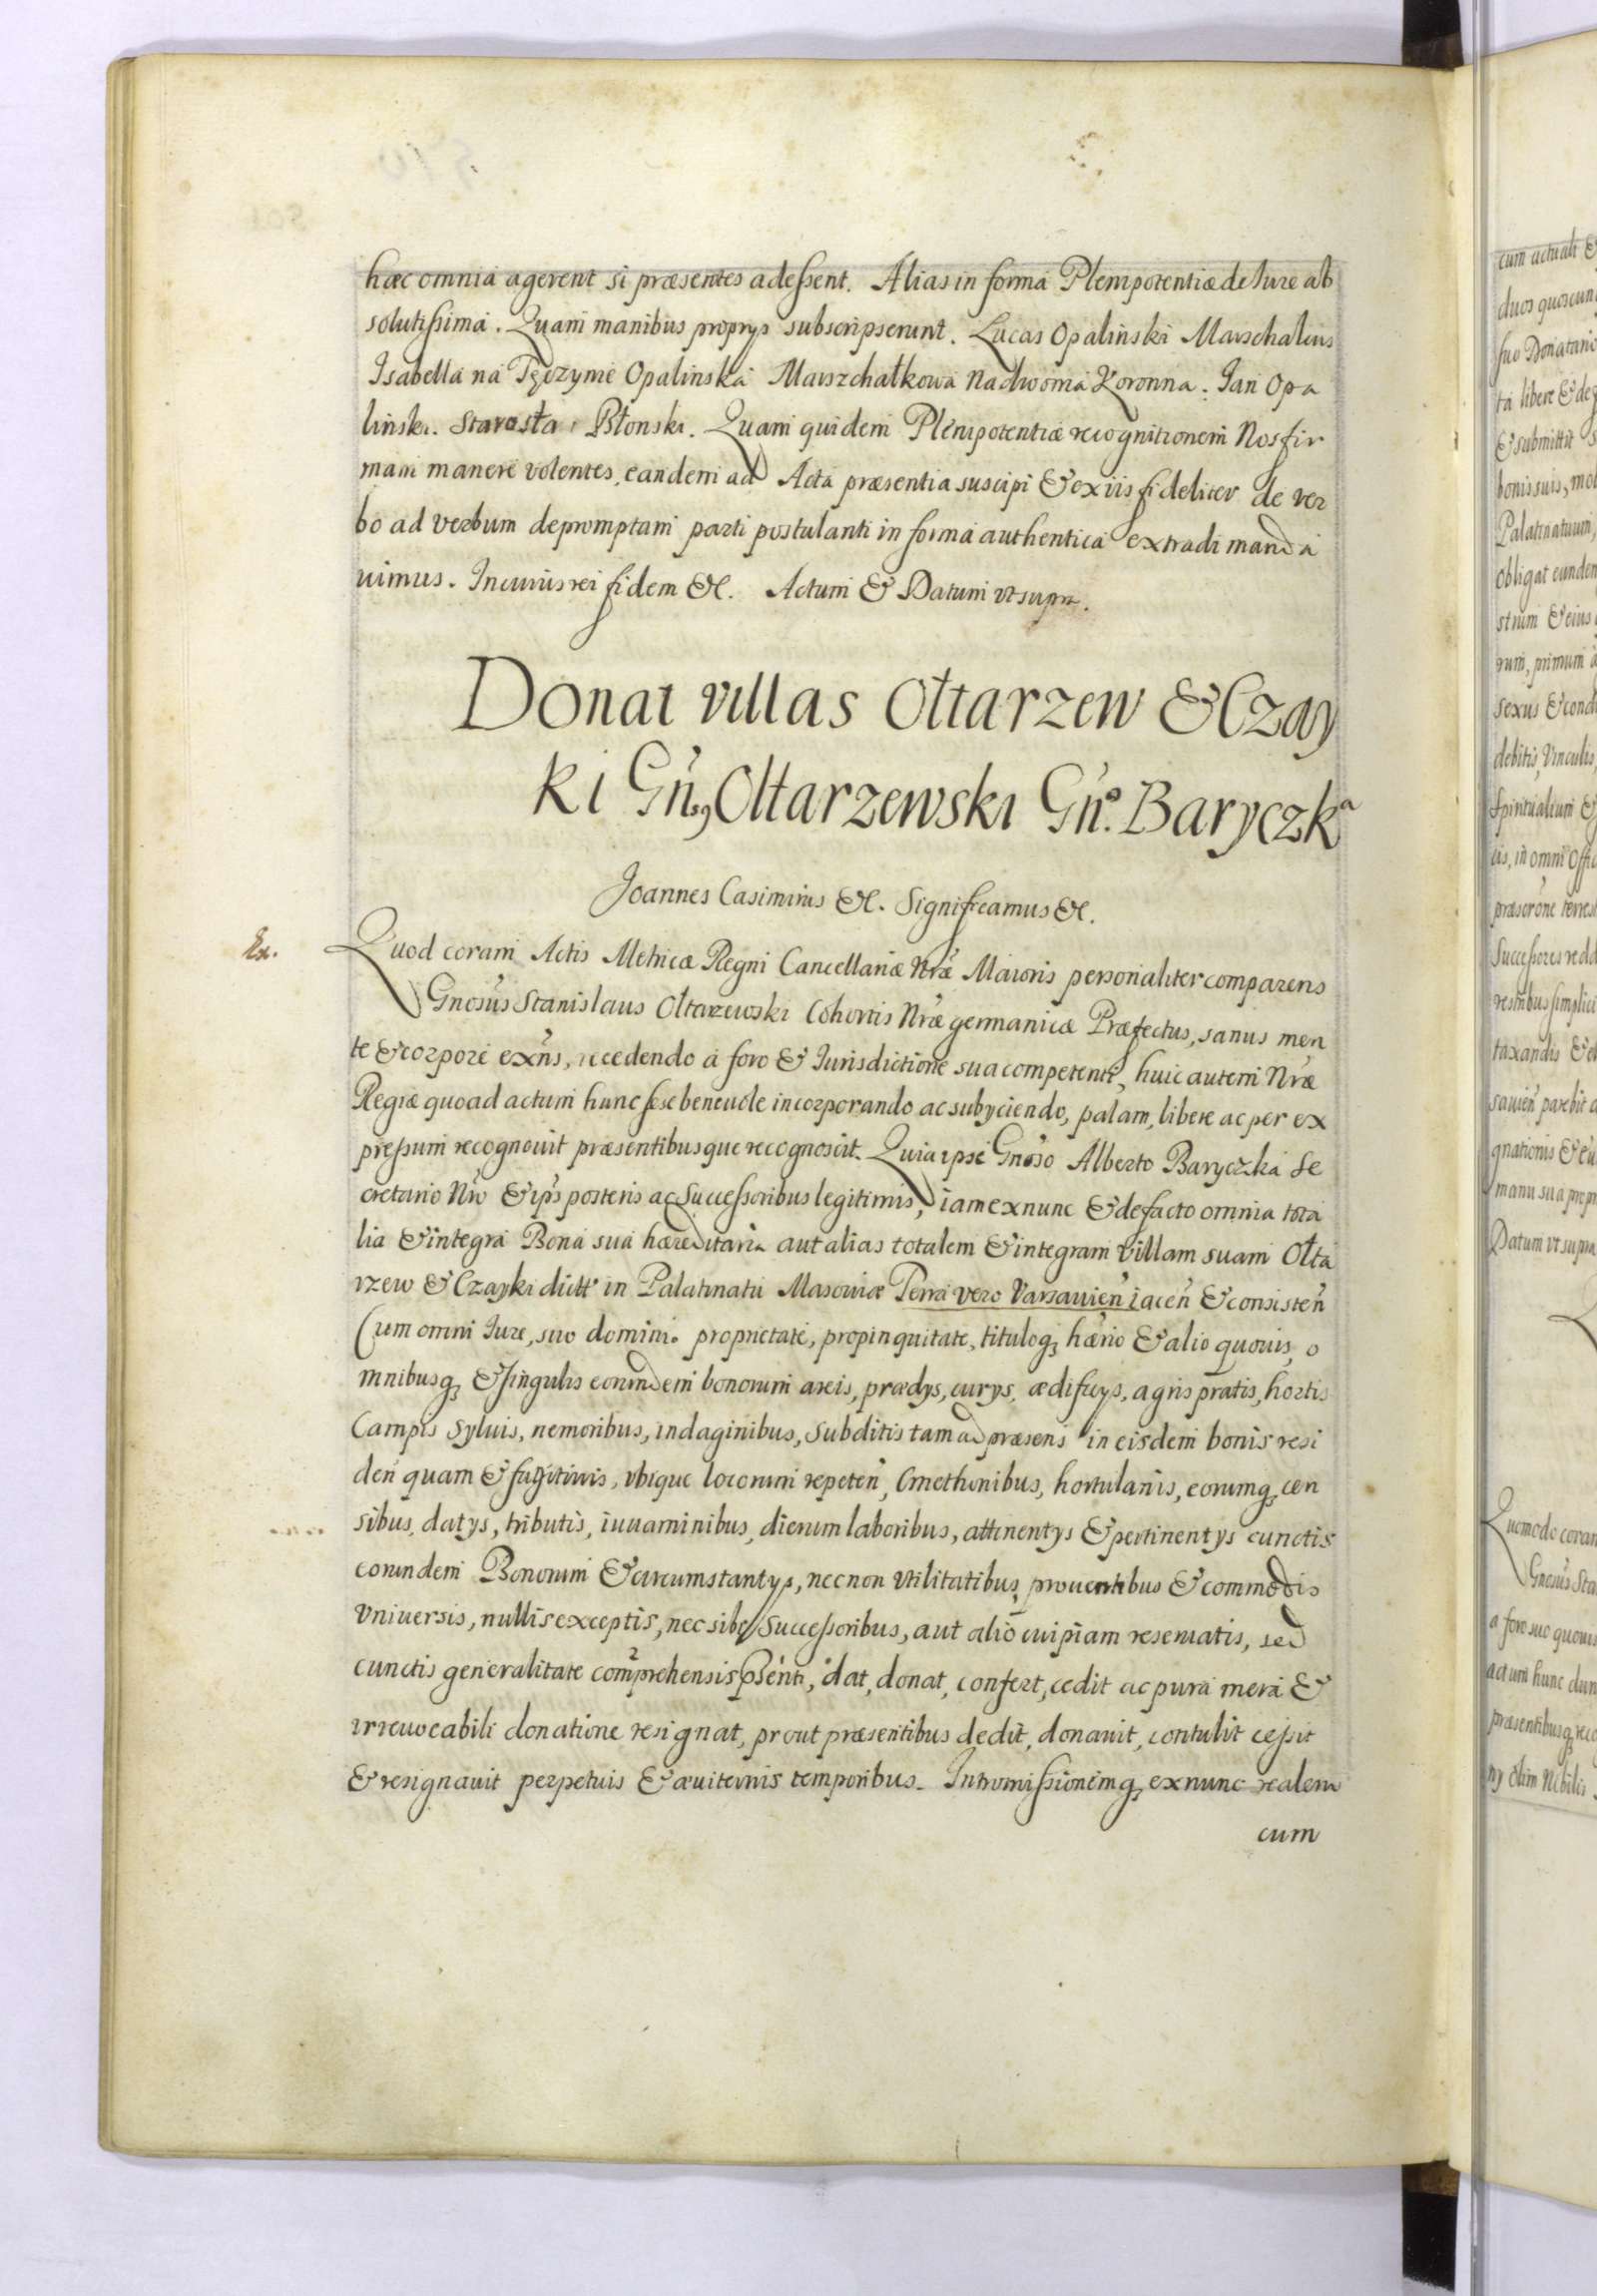 hæc omnia agerent si præsentes adessent. Alias in forma Plenipotentiæ de Iure ab
solutissima. Quam manibus proprys subscripserunt. Lucas Opalinski Marschalcus
Isabella na Tęczynie Opalinska Marszchałkowa Nadworna Koronna. Jan Opa
linski. Starosta Błonski. Quam quidem Plenipotentiæ recognitionem Nos fir
mam manere volentes, eandem ad Acta præsentia suscipi & ex iis fideliter de ver
bo ad verbum depromptam parti postulanti in forma authentica extradi manda
uimus. In cuius rei fidem &c. Actum & Datum vt supra.
Donat villas Ołtarzew & Czay
ki Gn̄s9 Ołtarzewski Gn̄o. Baryczka
Joannes Casimirus &c. Significamus &c.
Ex.
Quod coram Actis Metricæ Regni Cancellariæ Nr̄æ Maioris personaliter comparens
Gnosus Stanislaus Oltarzewski Cohortis Nr̄æ germanicæ Præfectus, sanus men
te & corpore exn̄s, recedendo a foro & Jurisdictione sua competenti, huic autem Nr̄æ
Regiæ quoad actum hunc sese beneuole incorporando ac subyciendo, palam, libere ac per ex
pressum recognouit præsentibusque recognoscit. Quia ipse Gnoso Alberto Baryczka Se
cretario Nr̄o & ip̄s posteris ac Successoribus legitimis, iam ex nunc & de facto omnia tota
lia & integra Bona sua hæreditaria aut alias totalem & integram villam suam Ołta
rzew & Czayki dictt in Palatinatu Masouiæ Terra vero Varsauien̄ iacen̄ & consisten̄
Cum omni Iure, suo dominio proprietate, propinquitate, tituloq3 hær̄io & alio quouis, o
mnibusq3 & singulis eorundem bonorum areis, prædys, curys, ædificys, agris pratis, hortis
Campis syluis, nemoribus, indaginibus, subditis tam ad præsens in eisdem bonis resi
den̄ quam & fugitiuis, vbique locorum repeten̄, Cmethonibus, hortulanis, eorumq3 cen
sibus, datys, tributis, iuuaminibus, dierum laboribus, attinentys & pertinentys cunctis
eorundem Bonorum & circumstantys, necnon vtilitatibus, prouentibus & commodis
Vniuersis, nullis exceptis, nec sibi, Successoribus, aut alio cuipiam reseruatis, sed
cunctis generalitate comprehensis psenti, dat, donat, confert, cedit ac pura mera &
irreuocabili donatione resignat, prout præsentibus dedit, donauit, contulit cessit
& resignauit perpetuis & æuiternis temporibus. Intromissionemq3 ex nunc realem
cum